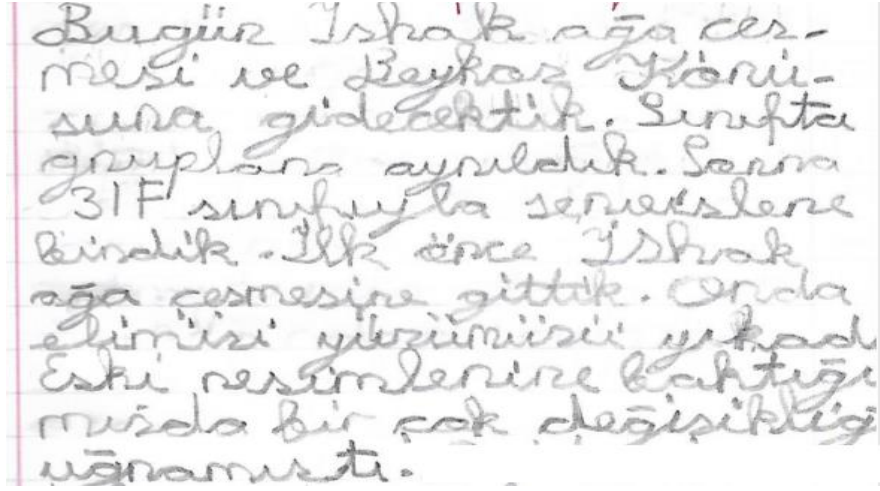 Bugün Ishak ağa ces-
mesi ve Beykoz Korü-
suna gidecektik. Sınıfta
gruplara ayrıldık. Sonra
3/F sınıfıyla servislere
bindik. İlk önce İshak
ağa cesmesine gittik. Orda
elimizi yüzümüzü yıkad
Eski resimlerine baktığı
mızda bir çok değişikliğ
uğramıstı.